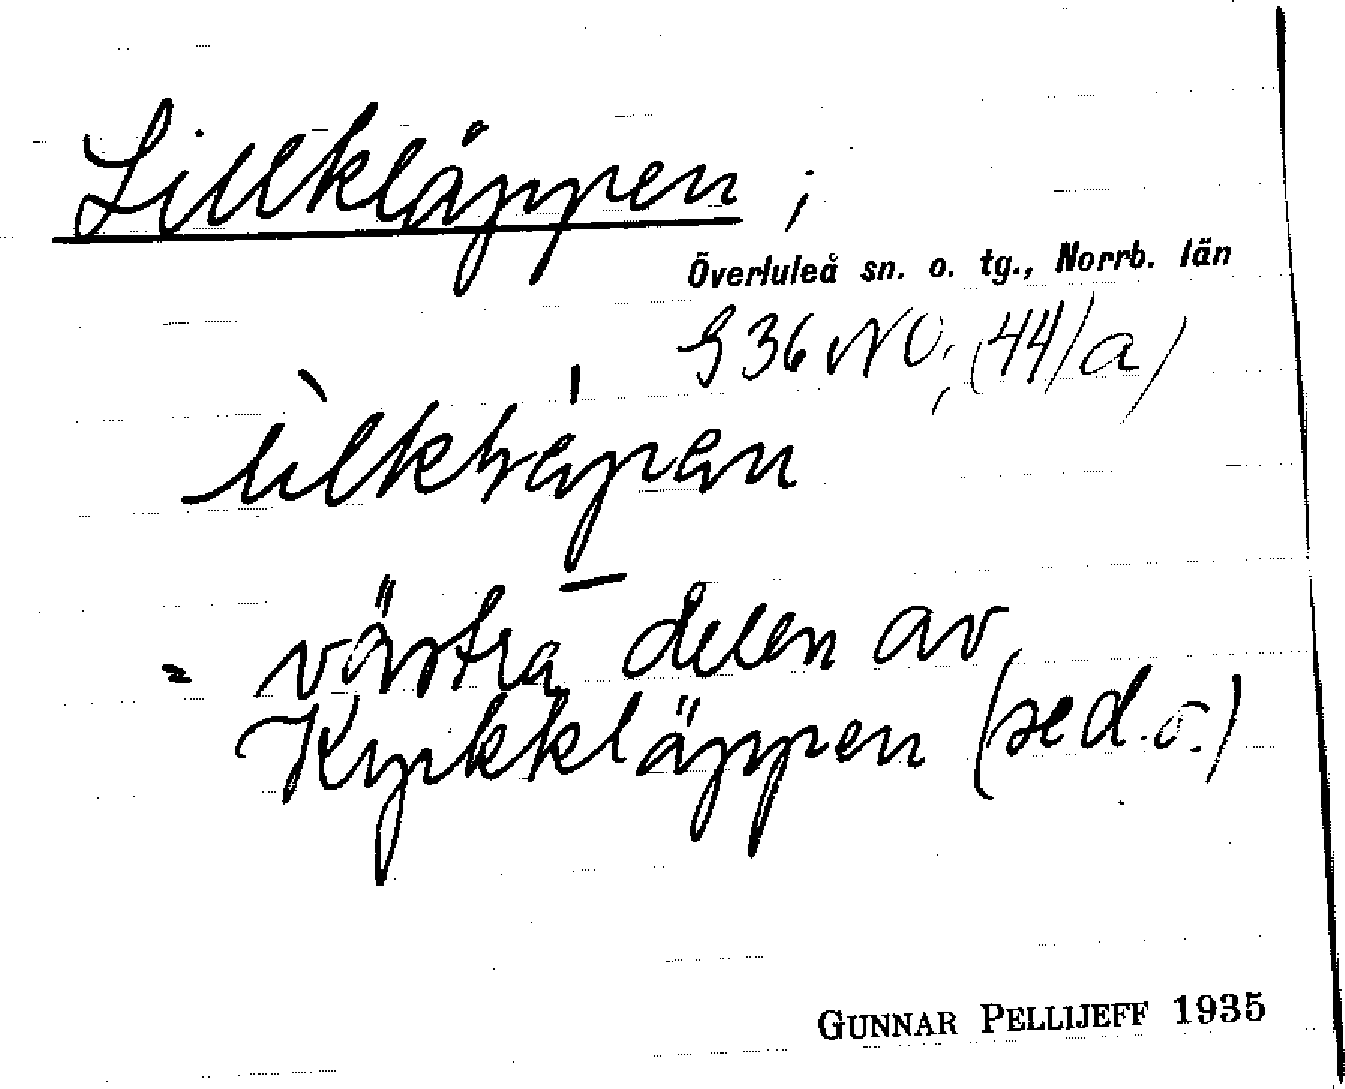 Lillkläppen ;
Överluleå sn. o. tg., Norrb. län
S 36 NO; (44/a)
= västra delen av
Kyrkkläppen (se d.o.)
GUNNAR PELLIJEFF 1935